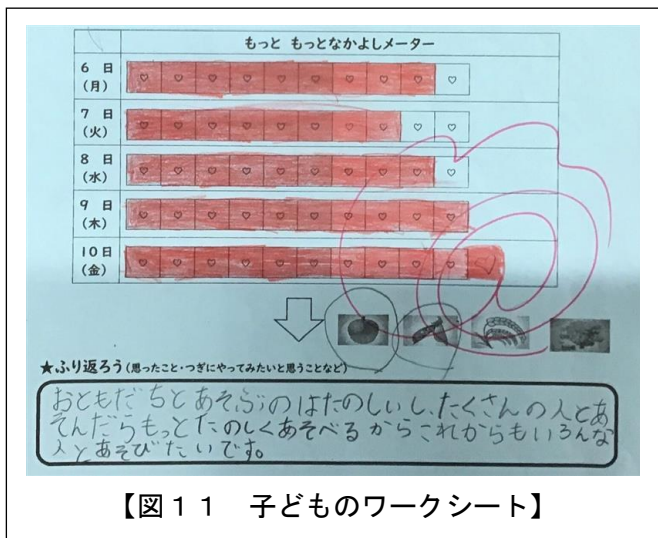 もっと もっとなかよしメーター
6 日
(月)
7 日
(火)
8 日
(水)
9 日
(木)
10日
(金)
★ふり返ろう(思ったこと・つぎにやってみたいと思うことなど)
おともだちとあそぶのはたのしいし、たくさんの人とあ
そんだらもっとたのしくあそべるからこれからもいろんな
人とあそびたいです。
【図11 子どものワークシート】